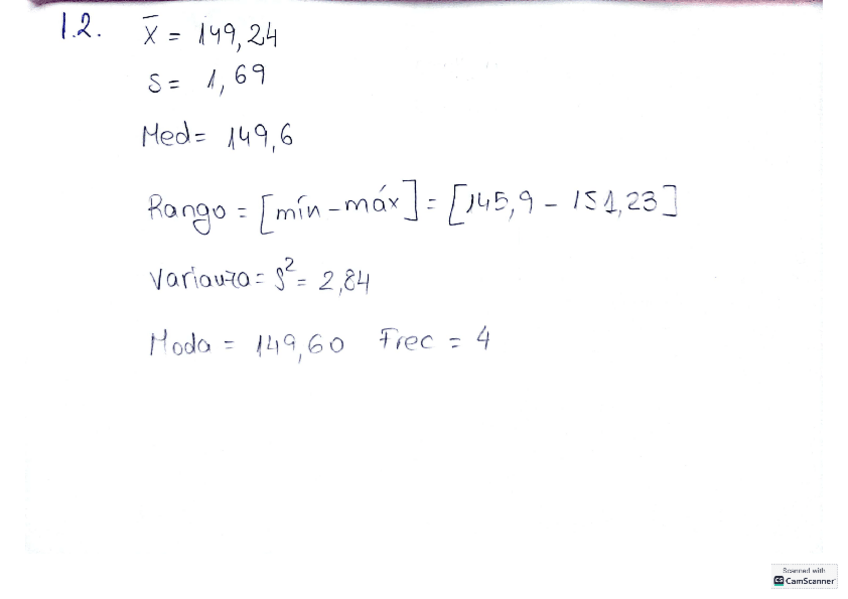 1.2. x̄ = 149,24
S = 1,69
Med = 149,6
Rango = [mín - máx] = [145,9 - 151,23]
Varianza = S² = 2,84
Moda = 149,60 Frec = 4
Scanned with
CS CamScanner